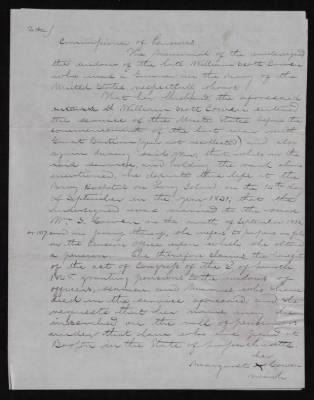 To the
Commissioner of Pensions.
The Memorial of the undersigned
the widow of the late William Scott Cowan
who was a Gunner in the Navy of the
United States, respectfully shows:
That her Husband, the aforesaid
William Scott Cowan entered
the service of the United States before the
commencement of the last war with
Great Britain (year not recollected) and also
again during said War, that while in the
said service, and holding the rank above
mentioned, he departed this life at the
Navy Hospital on Long Island on the 10th day
of September in the year 1831, that the
undersigned was married to the
Wm S. Cowan in the month of September
or 1817, and in proving this, she refers to papers on file
in the Pension Office upon which she obtained
a pension. She therefore claims the benefit
of the act of Congress of the 3 of March
granting pensions to the widows of
officers, seamen and Marines who have
died in the service aforesaid, and she
requests that her name may be
inscribed on the roll of pensioners
under that law who are paid at
Boston in the State of Massachusetts
her
Margaret X Cowan
mark